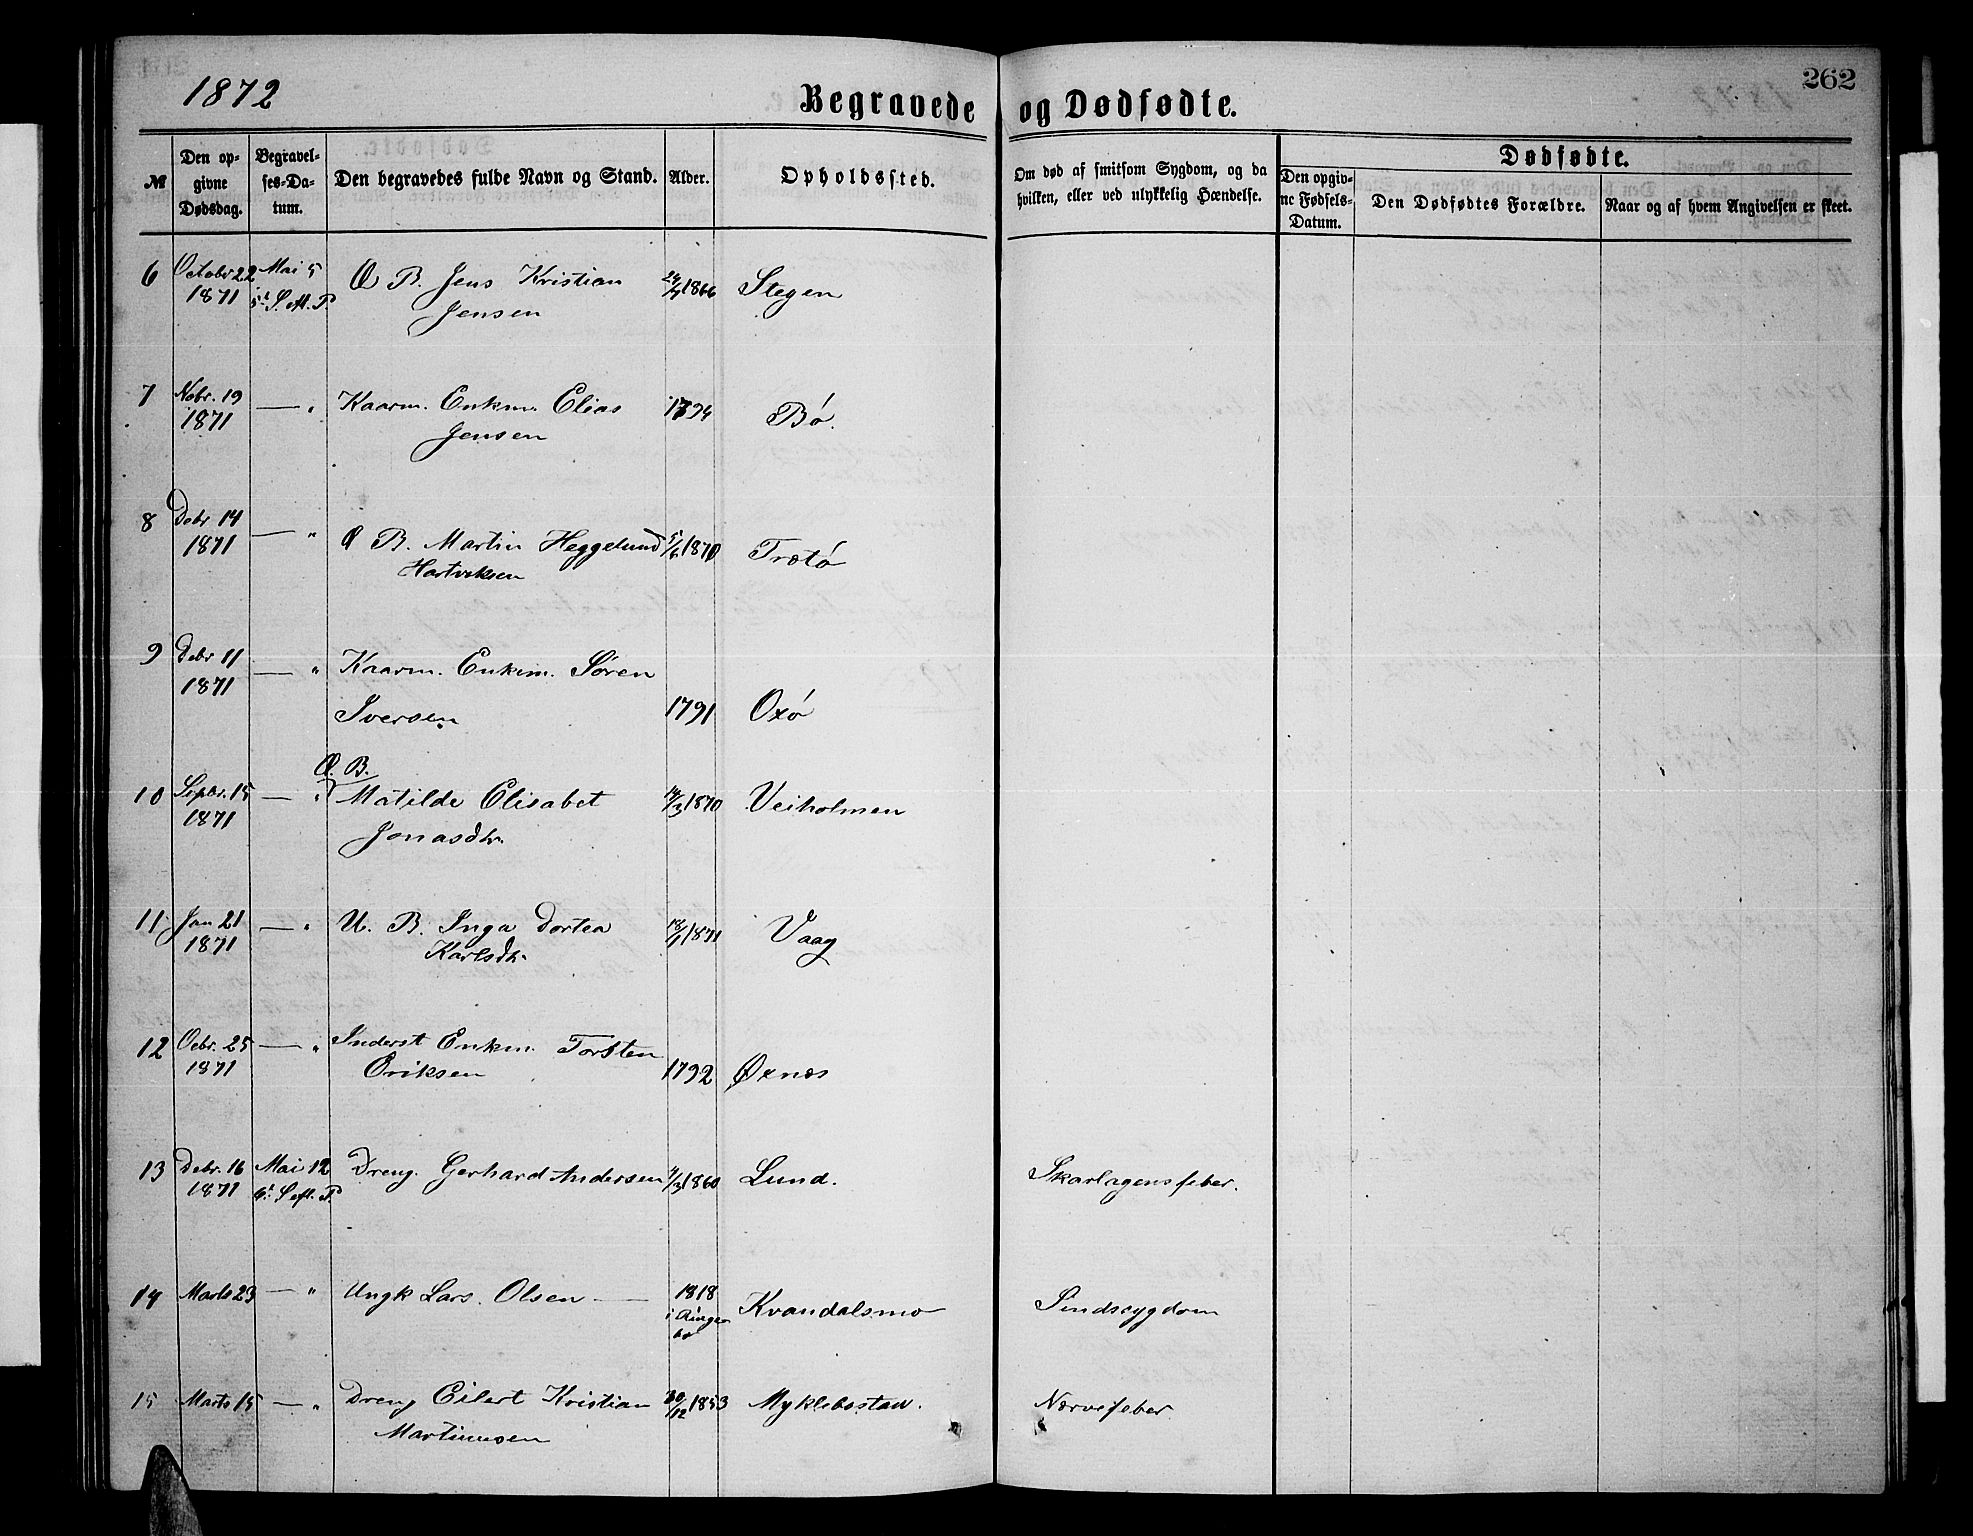 1872
Begravede og Dødfødte.
262
№
Den op-
givne
Dødsdag.
Begravel-
ses-Da-
tum.
Den begravedes fulde Navn og Stand.
Alder.
Opholdssted.
Om død af smitsom Sygdom, og da
hvilken, eller ved ulykkelig Hændelse.
Dødfødte.
Den opgiv-
ne Fødsels-
Datum.
Den Dødfødtes Forældre.
Naar og af hvem Angivelsen er skeet.
6 Octobr 22 Mai 5 Æ B. Jens Kristian 24/4 1866 Stegen
1871 5t S. eft. P. Jensen
7 Nobr. 19 — " Kaarm. Enkm. Elias 1794 Bø.
1871 Jensen
8 Debr 14 — " Æ B. Martin Heggelund 5/6 1870 Trøtø
1871 Hartviksen
9 Debr 11 — " Kaarm. Enkem. Søren
1871 Iversen 1791 Oxø
Æ. B.
10 Sepbr. 15 — " Matilde Elisabet 14/3 1870 Veiholmen
1871 Jonasdtr.
11 Jan 21 — " U. B. Inga Dortea 18/1 1871 Vaag
1871 Karlsdtr.
12 Ocbr. 25 — " Inderst Enkm. Torsten
1871 Eriksen 1792 Øxnæs
13 Debr. 16 Mai 12 Dreng. Gerhard Andersen 4/3 1860 Lund. Skarlagensfeber.
1871 6t S eft. P
14 Marts 23 — " Ungk Lars Olsen — 1818 Kvandalsmo Sindssygdom
i Ringe
bo
15 Marts 15 — " Dreng Eilert Kristian 30/12 1853 Myklebostad. Nervefeber
Martinusen